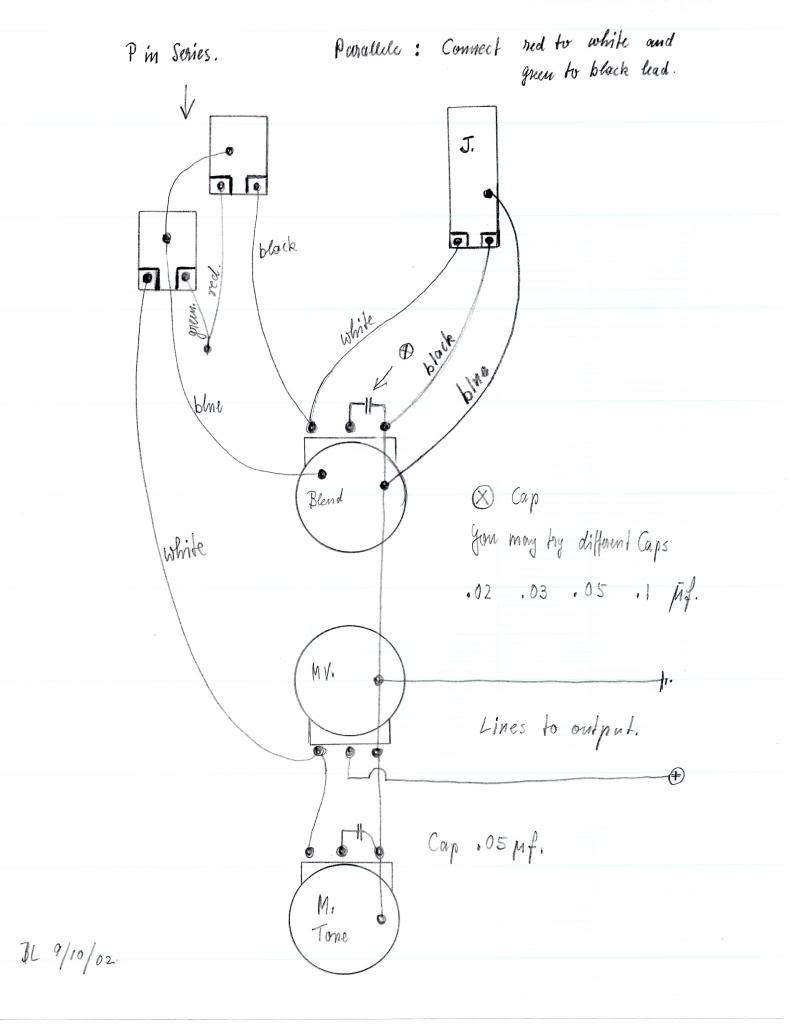 P in Series.
Parallele : Connect red to white and
green to black lead.
J.
black
red.
green.
white
black
blue
blue
Blend
Cap
You may try different Caps
.02 .03 .05 .1 µf.
white
MV.
Lines to output.
+
Cap .05 µf.
M.
Tone
BL 9/10/02